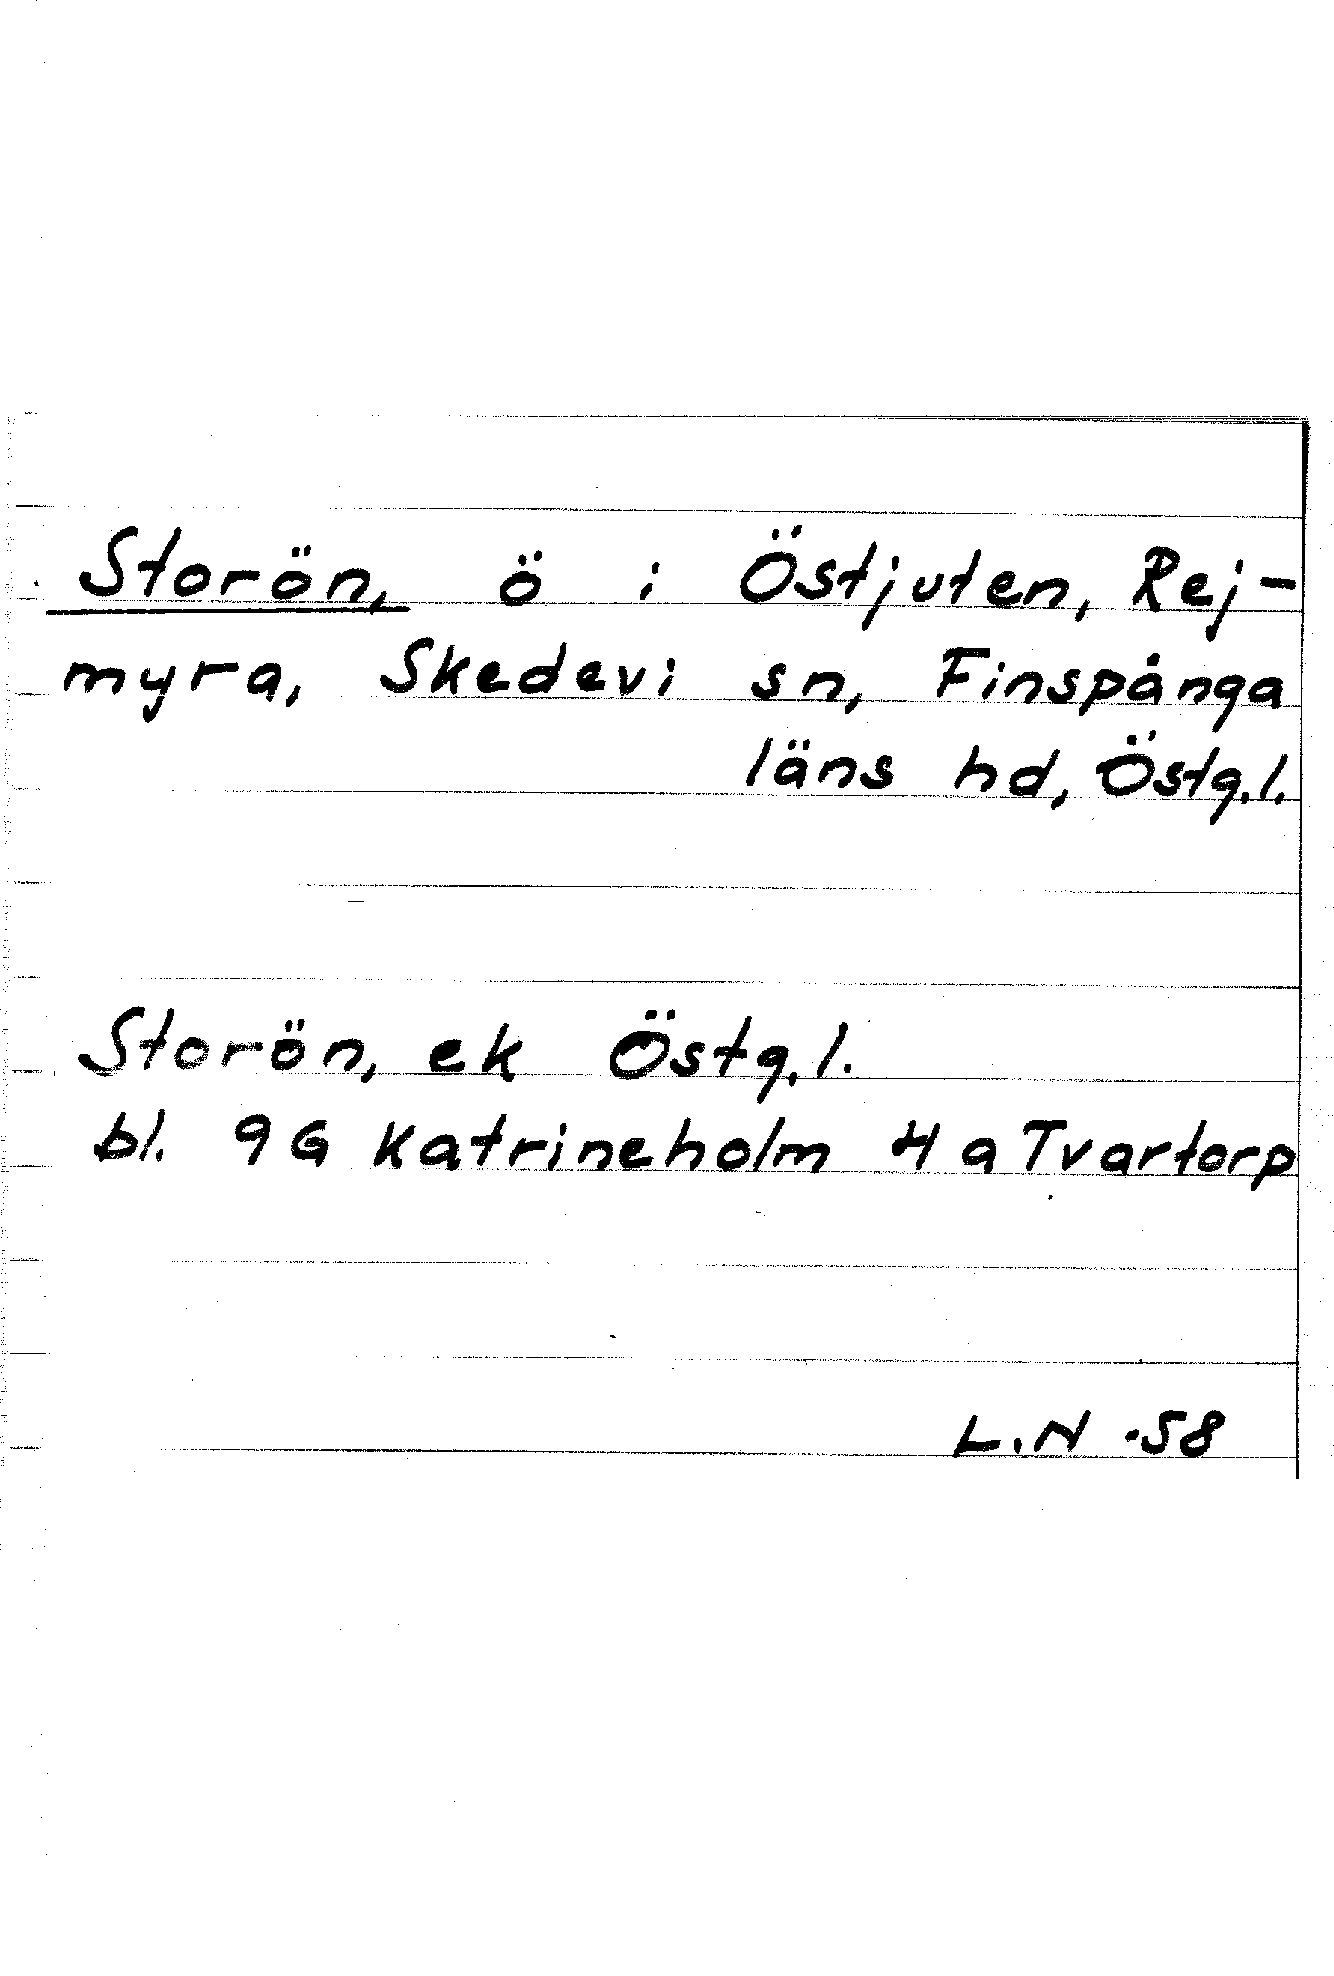 Storön, ö i Östjuten, Rej-
myra, Skedevi sn, Finspånga
läns hd, Östg.l.
Storön, ek Östg.l.
bl. 9G Katrineholm 4a Tvartorp
L.N -58